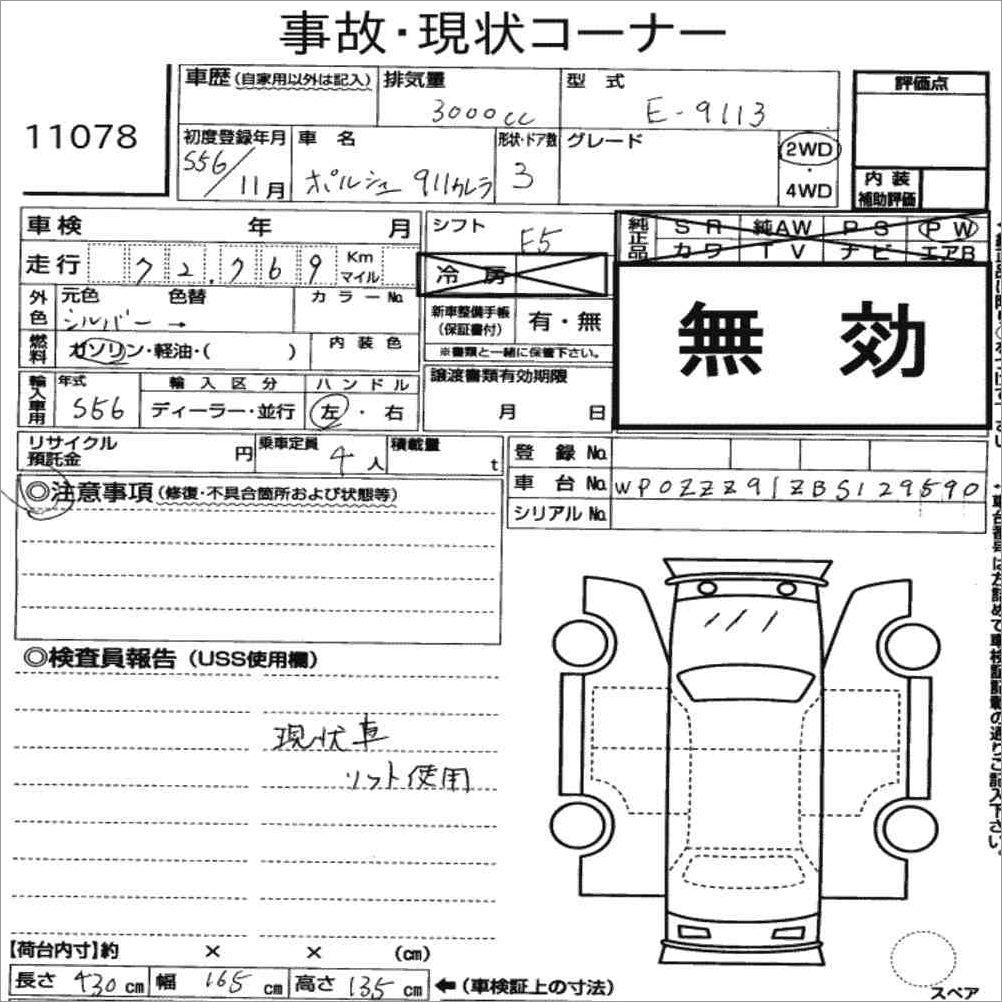 事故・現状コーナー
11078
車歴(自家用以外は記入)
排気量 3000cc
型式 E-9113
評価点
初度登録年月 S56/11月
車名 ポルシェ 911カレラ
形状・ドア数 3
グレード
2WD
4WD
内装
補助評価
車検 年 月
走行 72,769 Km マイル
シフト F5
冷房
純正品 SR 純AW PS PW
カワ TV ナビ エアB
無効
外色 元色 色替 カラーNo.
シルバー →
燃料 ガソリン・軽油・( )
内装色
新車整備手帳
(保証書付) 有・無
※書類と一緒に保管下さい。
輸入車用 年式 S56
輸入区分 ディーラー・並行
ハンドル 左・右
譲渡書類有効期限
月 日
リサイクル
預託金 円
乗車定員 4人
積載量 t
登録No.
車台No. WP0ZZZ91ZBS129590
シリアルNo.
◎注意事項(修復・不具合箇所および状態等)
◎検査員報告(USS使用欄)
現状車
リフト使用
【荷台内寸】約 × × (cm)
長さ 430cm 幅 165cm 高さ 135cm ←(車検証上の寸法)
スペア